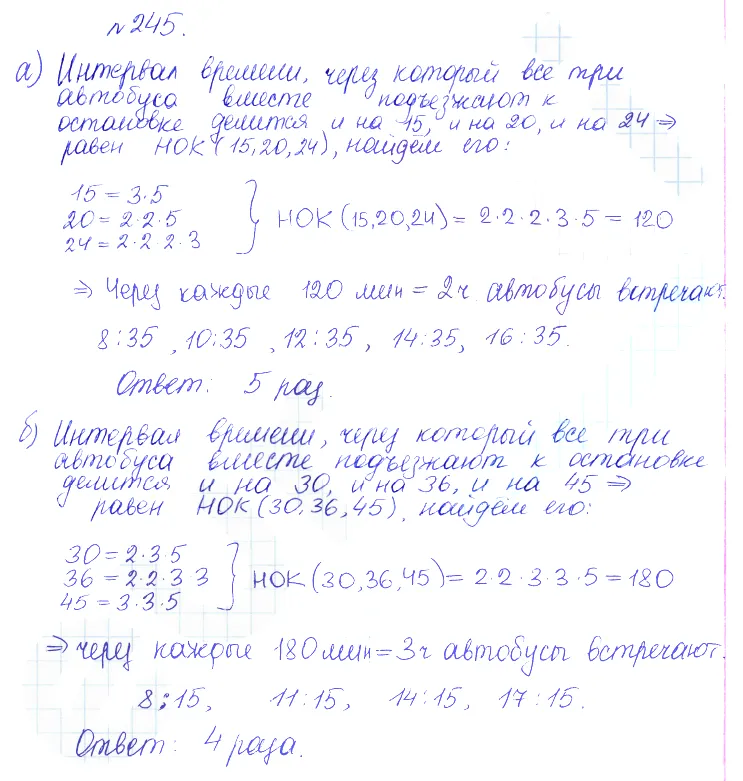 №245.
а) Интервал времени, через который все три
автобуса вместе подъезжают к
остановке делится и на 15, и на 20, и на 24 ⇒
равен НОК(15,20,24), найдём его:
15 = 3·5
20 = 2·2·5
24 = 2·2·2·3
} НОК(15,20,24) = 2·2·2·3·5 = 120
⇒ Через каждые 120 мин = 2ч автобусы встречают.
8:35, 10:35, 12:35, 14:35, 16:35.
Ответ: 5 раз.
б) Интервал времени, через который все три
автобуса вместе подъезжают к остановке
делится и на 30, и на 36, и на 45 ⇒
равен НОК(30,36,45), найдём его:
30 = 2·3·5
36 = 2·2·3·3
45 = 3·3·5
} НОК(30,36,45) = 2·2·3·3·5 = 180
⇒ через каждые 180 мин = 3ч автобусы встречают.
8:15, 11:15, 14:15, 17:15.
Ответ: 4 раза.